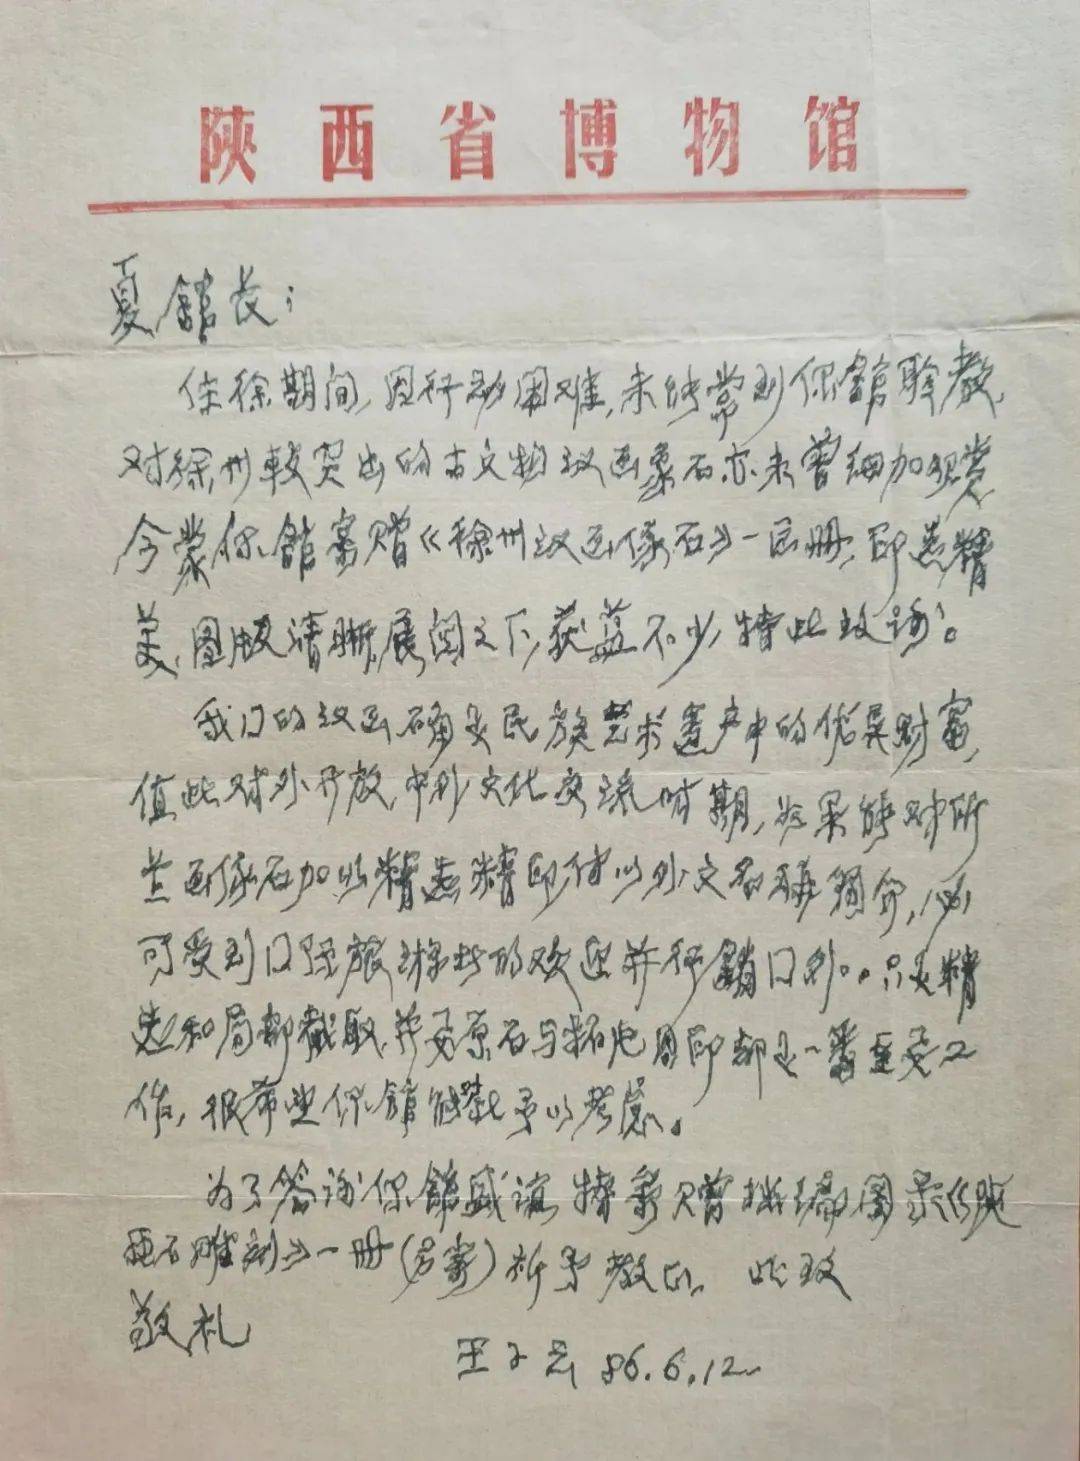 陕西省博物馆
夏館长：
住徐期间，因行动困难，未能常到你館聆教，
对徐州较突出的古文物汉画象石亦未曾细加观赏
今蒙你館寄赠《徐州汉画像石》一巨册，印装精
美，图版清晰，展阅之下，获益不少，特此致谢。
我们的汉画确是民族艺术遗产中的优异财富，
值此对外开放，中外文化交流时期，如果能对所
芸画像石加以精选精印，附以外文名称简介，必
可受到国际旅游者的欢迎并行銷国外。只是精
选和局部截取，并要原石与拓片同印都是一番重要工
作，很希望你館能予以考虑。
为了答谢你館盛谊，特寄赠拙编图录《陕
西石雕刻》一册（另寄）祈予教正。此致
敬礼
王子云 86.6.12